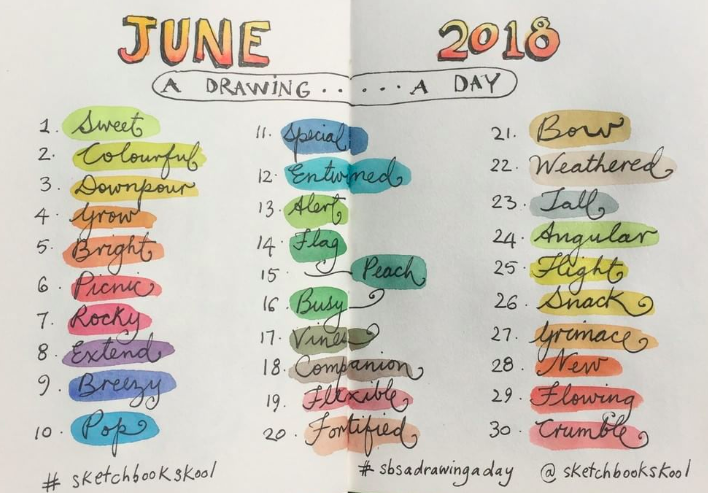 JUNE 2018
A DRAWING......A DAY
1. Sweet
2. Colourful
3. Downpour
4. Grow
5. Bright
6. Picnic
7. Rocky
8. Extend
9. Breezy
10. Pop
11. Special
12. Entwined
13. Alert
14. Flag
15 Peach
16 Busy
17. Vines
18. Companion
19. Flexible
20. Fortified
21. Bow
22. Weathered
23. Tall
24. Angular
25. Flight
26. Snack
27. Grimace
28. New
29. Flowing
30. Crumble
# sketchbookskool
# sbsadrawingaday @sketchbookskool